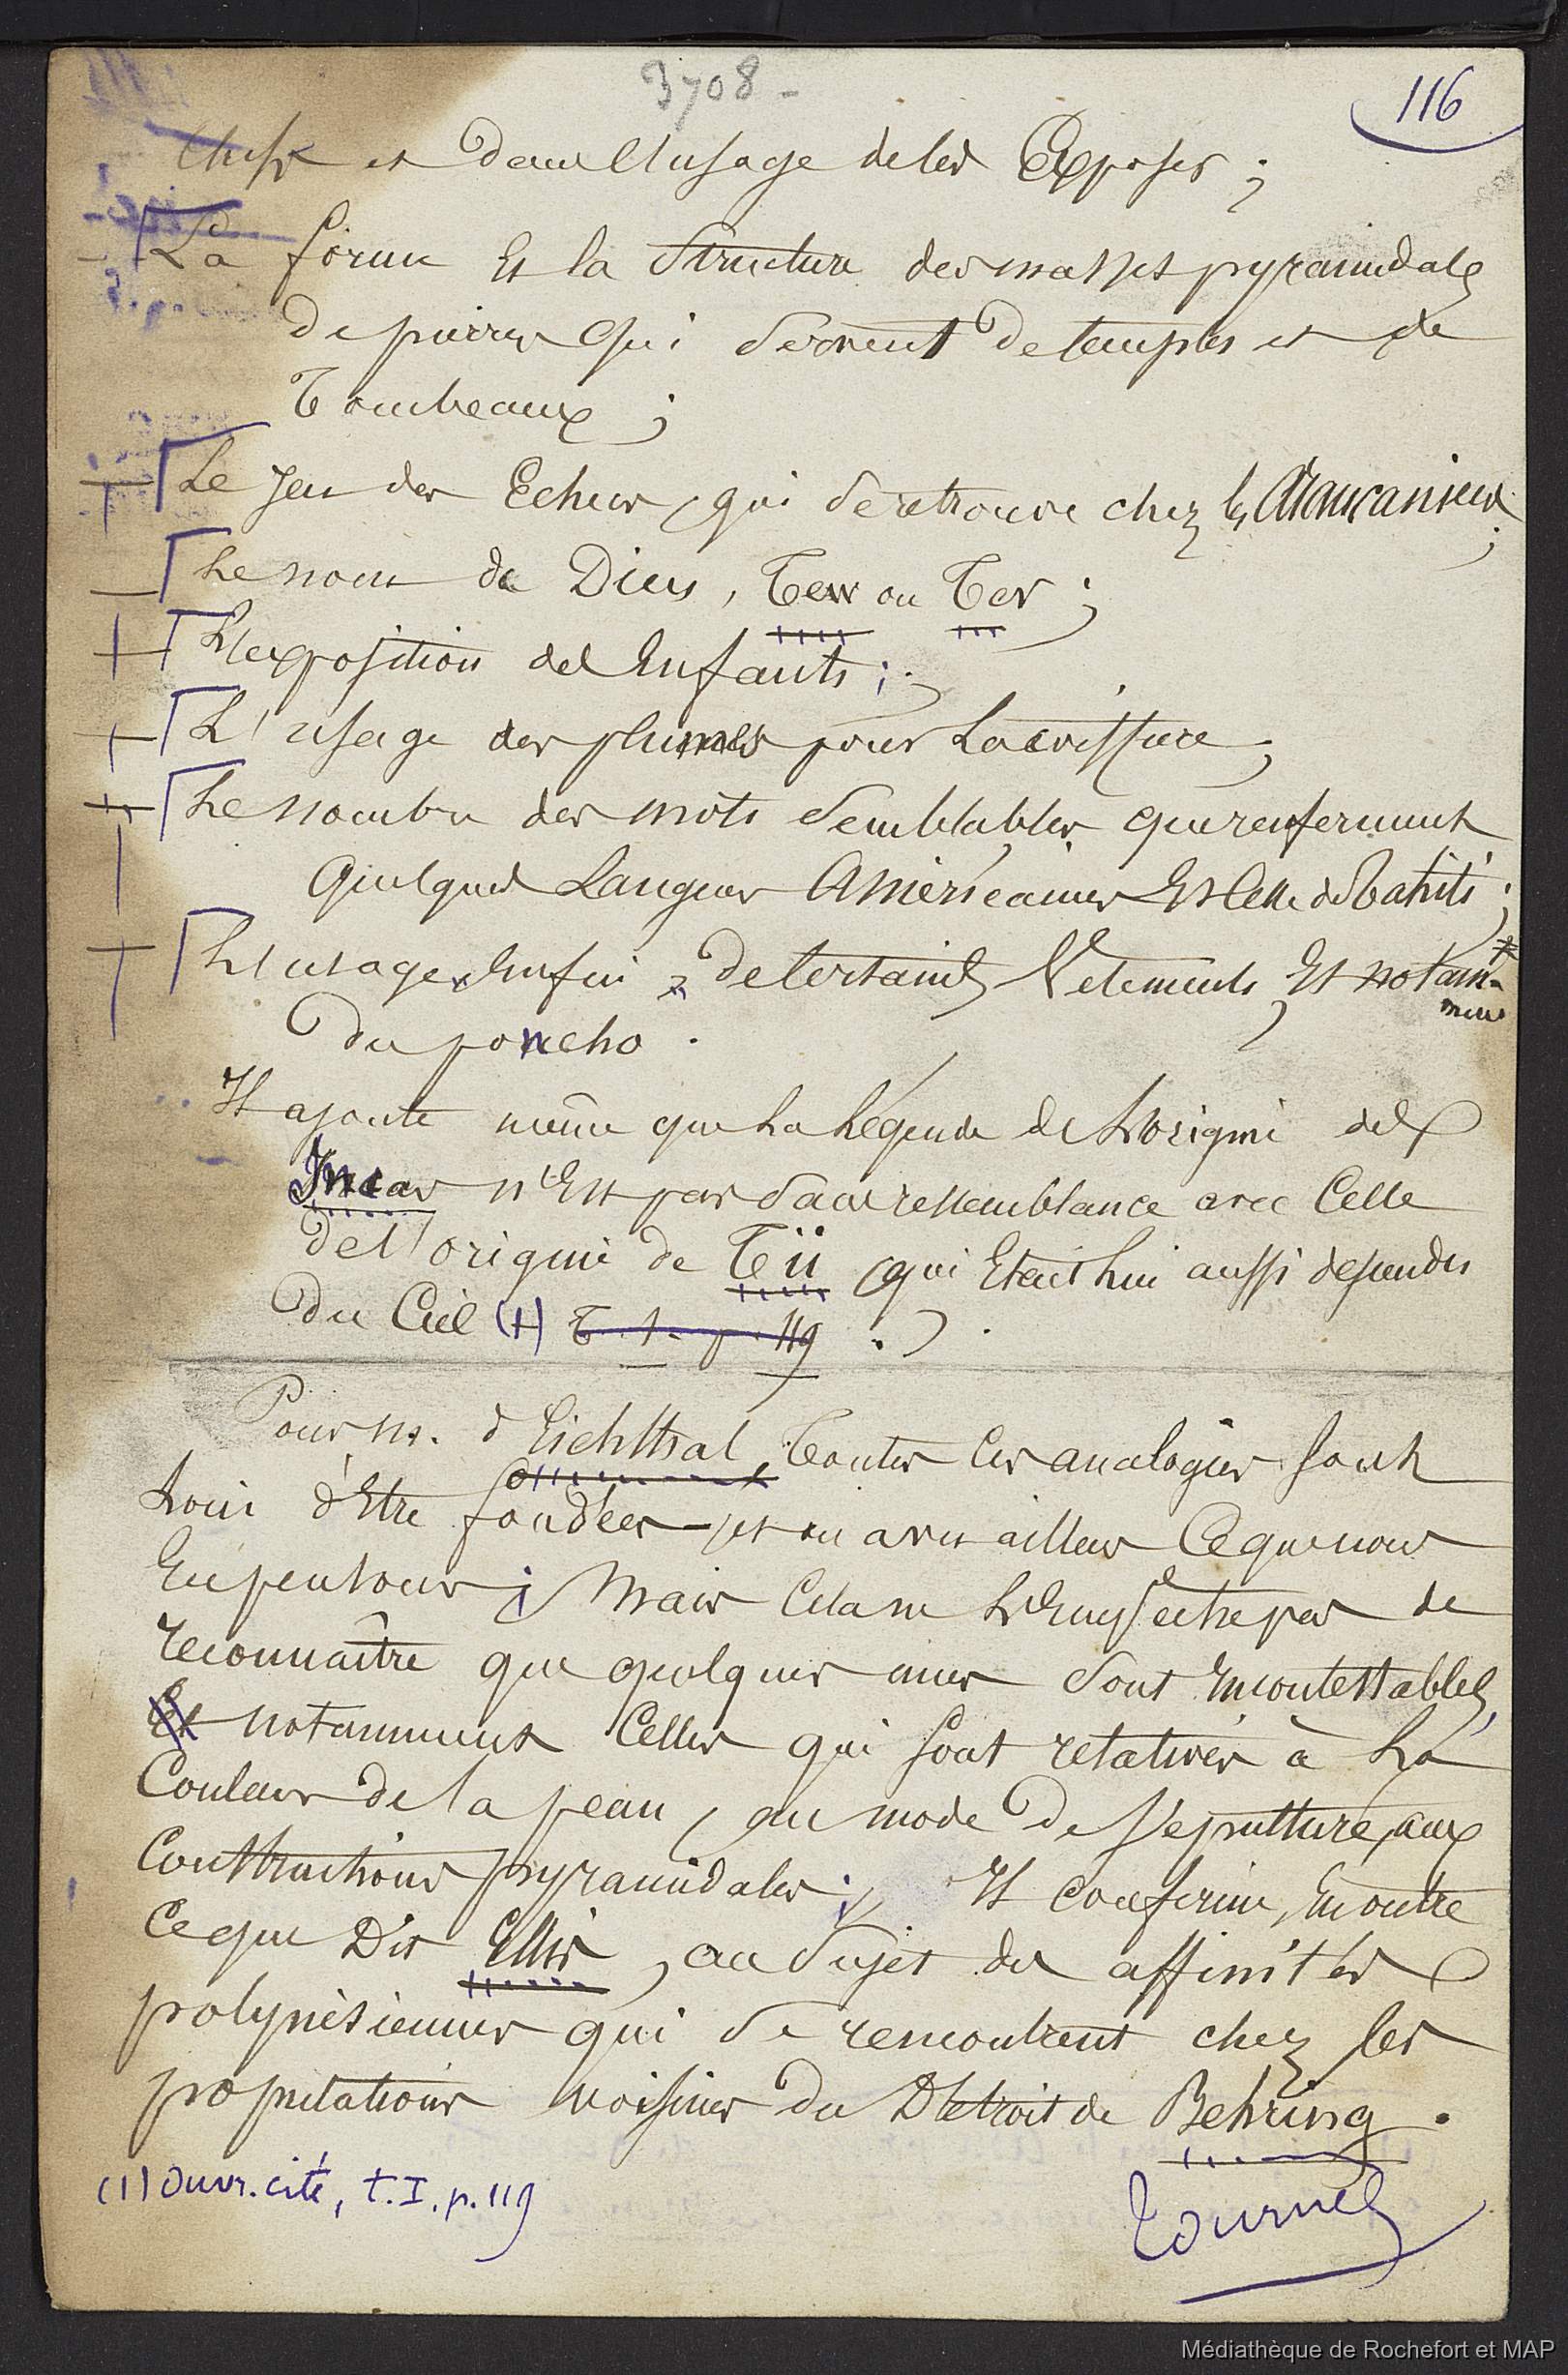 3708 -
116
Chefs et dans l'usage de les Exposer ;
La forme Et la Structure des masses pyramidales
de pierres qui servent de temples et de
Tombeaux ;
Le Jeu des Echecs, qui se retrouve chez les Araucaniens ;
Le nom de Dieu, Tew ou Tev ;
L'exposition des Enfants ;
L'usage des plumes pour La coiffure ;
Le nombre des mots semblables que renferment
quelques Langues Américaines Et celle de Tahiti ;
L'usage Enfin de certains Vetements Et notam-
ment
du poncho .
Il ajoute même que La Légende de L'origine des
Incas n'Est pas sans ressemblance avec Celle
de l'origine de Tii (qui Etait lui aussi descendu
du Ciel (1) T. 1. p. 119 . )
Pour M. d'Eichthal, Toutes les analogies sont
Loin d'Etre fondées et on a vu ailleurs Ce que nous
En pensons ; Mais Cela ne L'Empêche pas de
reconnaître que quelques unes sont Incontestables,
Et notamment Celles qui sont relatives à La
Couleur de la peau, au mode de Sépulture, aux
Constructions pyramidales ; Il confirme, En outre
Ce que Dit Ellis, au sujet des affinités
polynésiennes qui se rencontrent chez les
populations voisines du Détroit de Behring .
(1) Ouvr. cité, t. I. p. 119
Tournez
Médiathèque de Rochefort et MAP